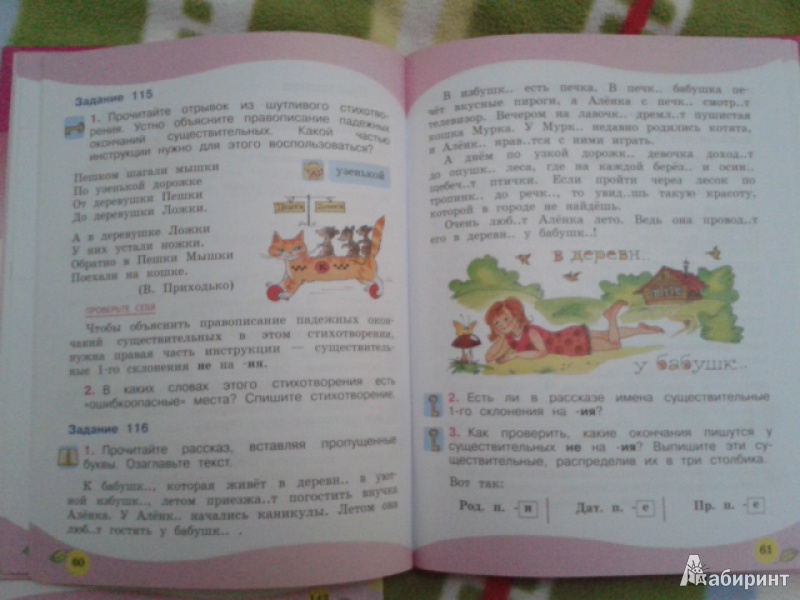 Задание 115
1. Прочитайте отрывок из шутливого стихотво-
рения. Устно объясните правописание падежных
окончаний существительных. Какой частью
инструкции нужно для этого воспользоваться?
Пешком шагали мышки
По узенькой дорожке
От деревушки Пешки
До деревушки Ложки.
узенькой
А в деревушке Ложки
У них устали ножки.
Обратно в Пешки Мышки
Поехали на кошке.
(В. Приходько)
ПРОВЕРЬТЕ СЕБЯ
Чтобы объяснить правописание падежных окон-
чаний существительных в этом стихотворении,
нужна правая часть инструкции — существитель-
ные 1-го склонения не на -ия.
2. В каких словах этого стихотворения есть
«ошибкоопасные» места? Спишите стихотворение.
Задание 116
1. Прочитайте рассказ, вставляя пропущенные
буквы. Озаглавьте текст.
К бабушк.., которая живёт в деревн.. в уют-
ной избушк.., летом приезжа..т погостить внучка
Алёнка. У Алёнк.. начались каникулы. Летом она
люб..т гостить у бабушк.. .
60
В избушк.. есть печка. В печк.. бабушка пе-
чёт вкусные пироги, а Алёнка с печк.. смотр..т
телевизор. Вечером на лавочк.. дремл..т пушистая
кошка Мурка. У Мурк.. недавно родились котята,
и Алёнк.. нрав..тся с ними играть.
А днём по узкой дорожк.. девочка доход..т
до опушк.. леса, где на каждой берёз.. и осин..
щебеч..т птички. Если пройти через лесок по
тропинк.. до речк.., то увид..шь такую красоту,
которой в городе не найдёшь.
Очень люб..т Алёнка лето. Ведь она провод..т
его в деревн.. у бабушк..!
в деревн..
у бабушк..
2. Есть ли в рассказе имена существительные
1-го склонения на -ия?
3. Как проверить, какие окончания пишутся у
существительных не на -ия? Выпишите эти су-
ществительные, распределив их в три столбика.
Вот так:
Род. п. -и Дат. п. -е Пр. п. -е
61
Лабиринт